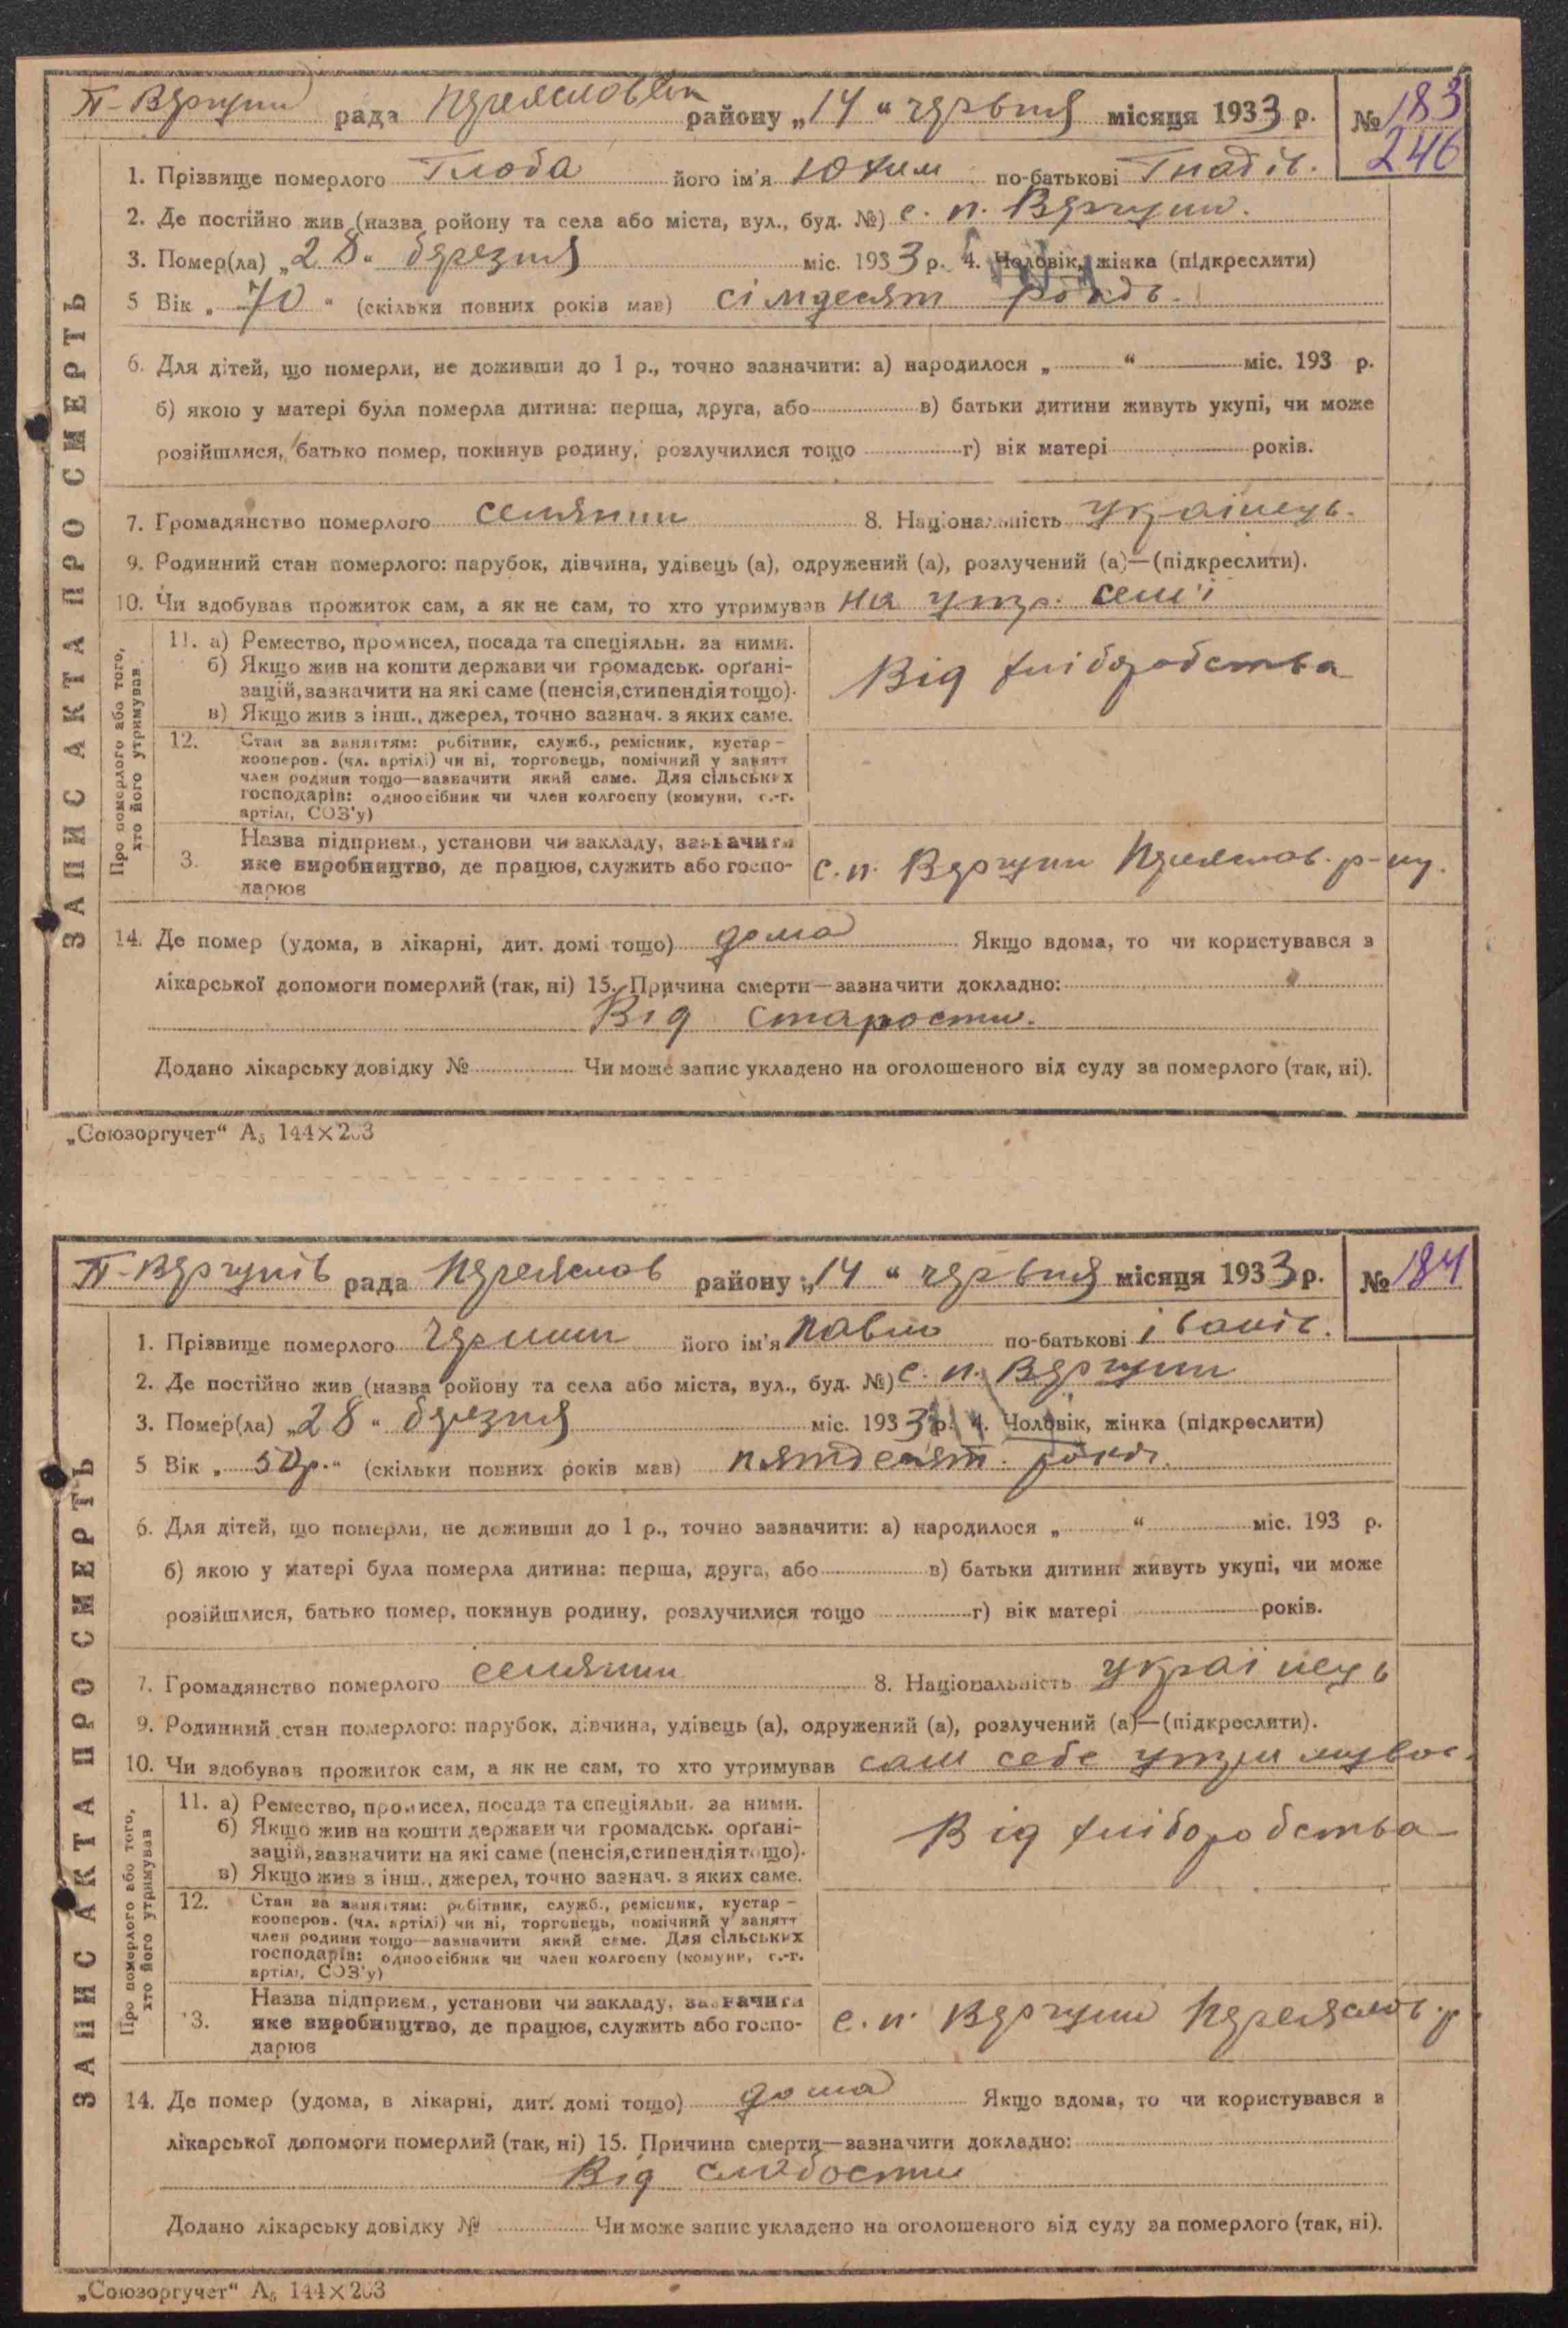 П-Вергуни рада Переясловськ району „14“ червня місяця 1933 р. № 183
246
1. Прізвище померлого Глоба його ім'я Юхим по-батькові Гнатів.
2. Де постійно жив (назва ройону та села або міста, вул., буд. №) с. п. Вергуни.
3. Помер(ла) „28“ березня міс. 1933 р. 4. Чоловік, жінка (підкреслити)
5 Вік „70“ (скільки повних років мав) сімдесят років.
6. Для дітей, що померли, не доживши до 1 р., точно зазначити: а) народилося „ “ міс. 193 р.
б) якою у матері була померла дитина: перша, друга, або в) батьки дитини живуть укупі, чи може
розійшлися, батько помер, покинув родину, розлучилися тощо г) вік матері років.
7. Громадянство померлого селянин 8. Національність українець.
9. Родинний стан померлого: парубок, дівчина, удівець (а), одружений (а), розлучений (а)—(підкреслити).
10. Чи здобував прожиток сам, а як не сам, то хто утримував на утр. сем'ї
ЗАПИС АКТА ПРО СМЕРТЬ
Про померлого або того,
хто його утримував
11. а) Ремество, промисел, посада та спеціяльн. за ними.
б) Якщо жив на кошти держави чи громадськ. орґані-
зацій, зазначити на які саме (пенсія, стипендія тощо).
в) Якщо жив з інш., джерел, точно зазнач. з яких саме.
Від хліборобства
12. Стан за заняттям: робітник, служб., ремісник, кустар –
кооперов. (чл. артілі) чи ні, торговець, помічний у занятт
член родини тощо—зазначити який саме. Для сільських
господарів: одноосібник чи член колгоспу (комуни, с.-г.
артілі, СОЗ'у)
3. Назва підприєм., установи чи закладу, зазначити
яке виробництво, де працює, служить або госпо-
дарює
с. п. Вергуни Переяслов. р-ну.
14. Де помер (удома, в лікарні, дит. домі тощо) дома Якщо вдома, то чи користувався з
лікарської допомоги померлий (так, ні) 15. Причина смерти—зазначити докладно:
Від старости.
Додано лікарську довідку № Чи може запис укладено на оголошеного від суду за померлого (так, ні).
„Союзоргучет“ А5 144×203
П-Вергунів рада Переяслов району „14“ червня місяця 1933 р. № 184
1. Прізвище померлого його ім'я Павло по-батькові Іванів.
2. Де постійно жив (назва ройону та села або міста, вул., буд. №) с. п. Вергуни
3. Помер(ла) „28“ березня міс. 1933 р. 4. Чоловік, жінка (підкреслити)
5 Вік „50р.“ (скільки повних років мав) пятдесят. років.
6. Для дітей, що померли, не доживши до 1 р., точно зазначити: а) народилося „ “ міс. 193 р.
б) якою у матері була померла дитина: перша, друга, або в) батьки дитини живуть укупі, чи може
розійшлися, батько помер, покинув родину, розлучилися тощо г) вік матері років.
7. Громадянство померлого селянин 8. Національність українець
9. Родинний стан померлого: парубок, дівчина, удівець (а), одружений (а), розлучений (а)—(підкреслити).
10. Чи здобував прожиток сам, а як не сам, то хто утримував сам себе утримував.
ЗАПИС АКТА ПРО СМЕРТЬ
Про померлого або того,
хто його утримував
11. а) Ремество, промисел, посада та спеціяльн. за ними.
б) Якщо жив на кошти держави чи громадськ. орґані-
зацій, зазначити на які саме (пенсія, стипендія тощо).
в) Якщо жив з інш., джерел, точно зазнач. з яких саме.
Від хліборобства
12. Стан за заняттям: робітник, служб., ремісник, кустар –
кооперов. (чл. артілі) чи ні, торговець, помічний у занятт
член родини тощо—зазначити який саме. Для сільських
господарів: одноосібник чи член колгоспу (комуни, с.-г.
артілі, СОЗ'у)
3. Назва підприєм., установи чи закладу, зазначити
яке виробництво, де працює, служить або госпо-
дарює
с. п. Вергуни Переяслов. р
14. Де помер (удома, в лікарні, дит. домі тощо) дома Якщо вдома, то чи користувався з
лікарської допомоги померлий (так, ні) 15. Причина смерти—зазначити докладно:
Від слабости
Додано лікарську довідку № Чи може запис укладено на оголошеного від суду за померлого (так, ні).
„Союзоргучет“ А5 144×203